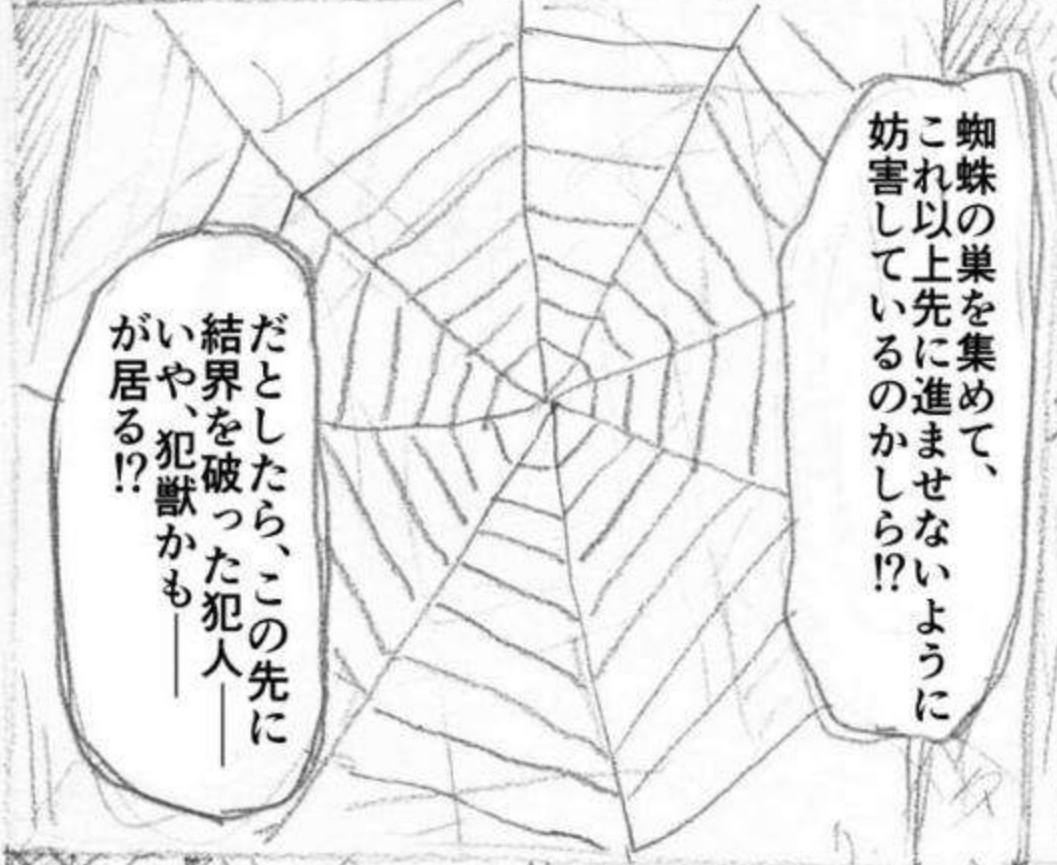 蜘蛛の巣を集めて、
これ以上先に進ませないように
妨害しているのかしら!?
だとしたら、この先に
結界を破った犯人――
いや、犯獣かも――
が居る!?